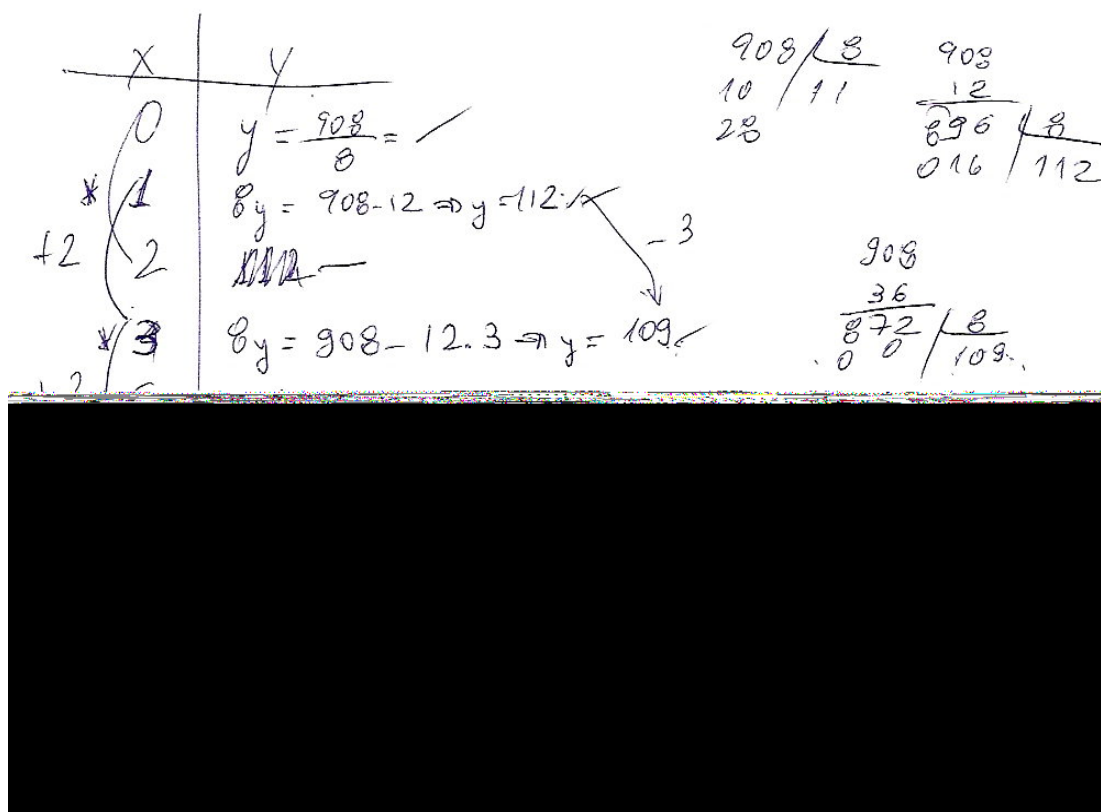 X Y
0 y = 908/8 =
* 1 8y = 908-12 ⇒ y = 112
+2 2 —
- 3
* 3 8y = 908 - 12.3 ⇒ y = 109.
908 8
10 11
28
908
12
896 8
016 112
908
36
872 8
0 0 109.